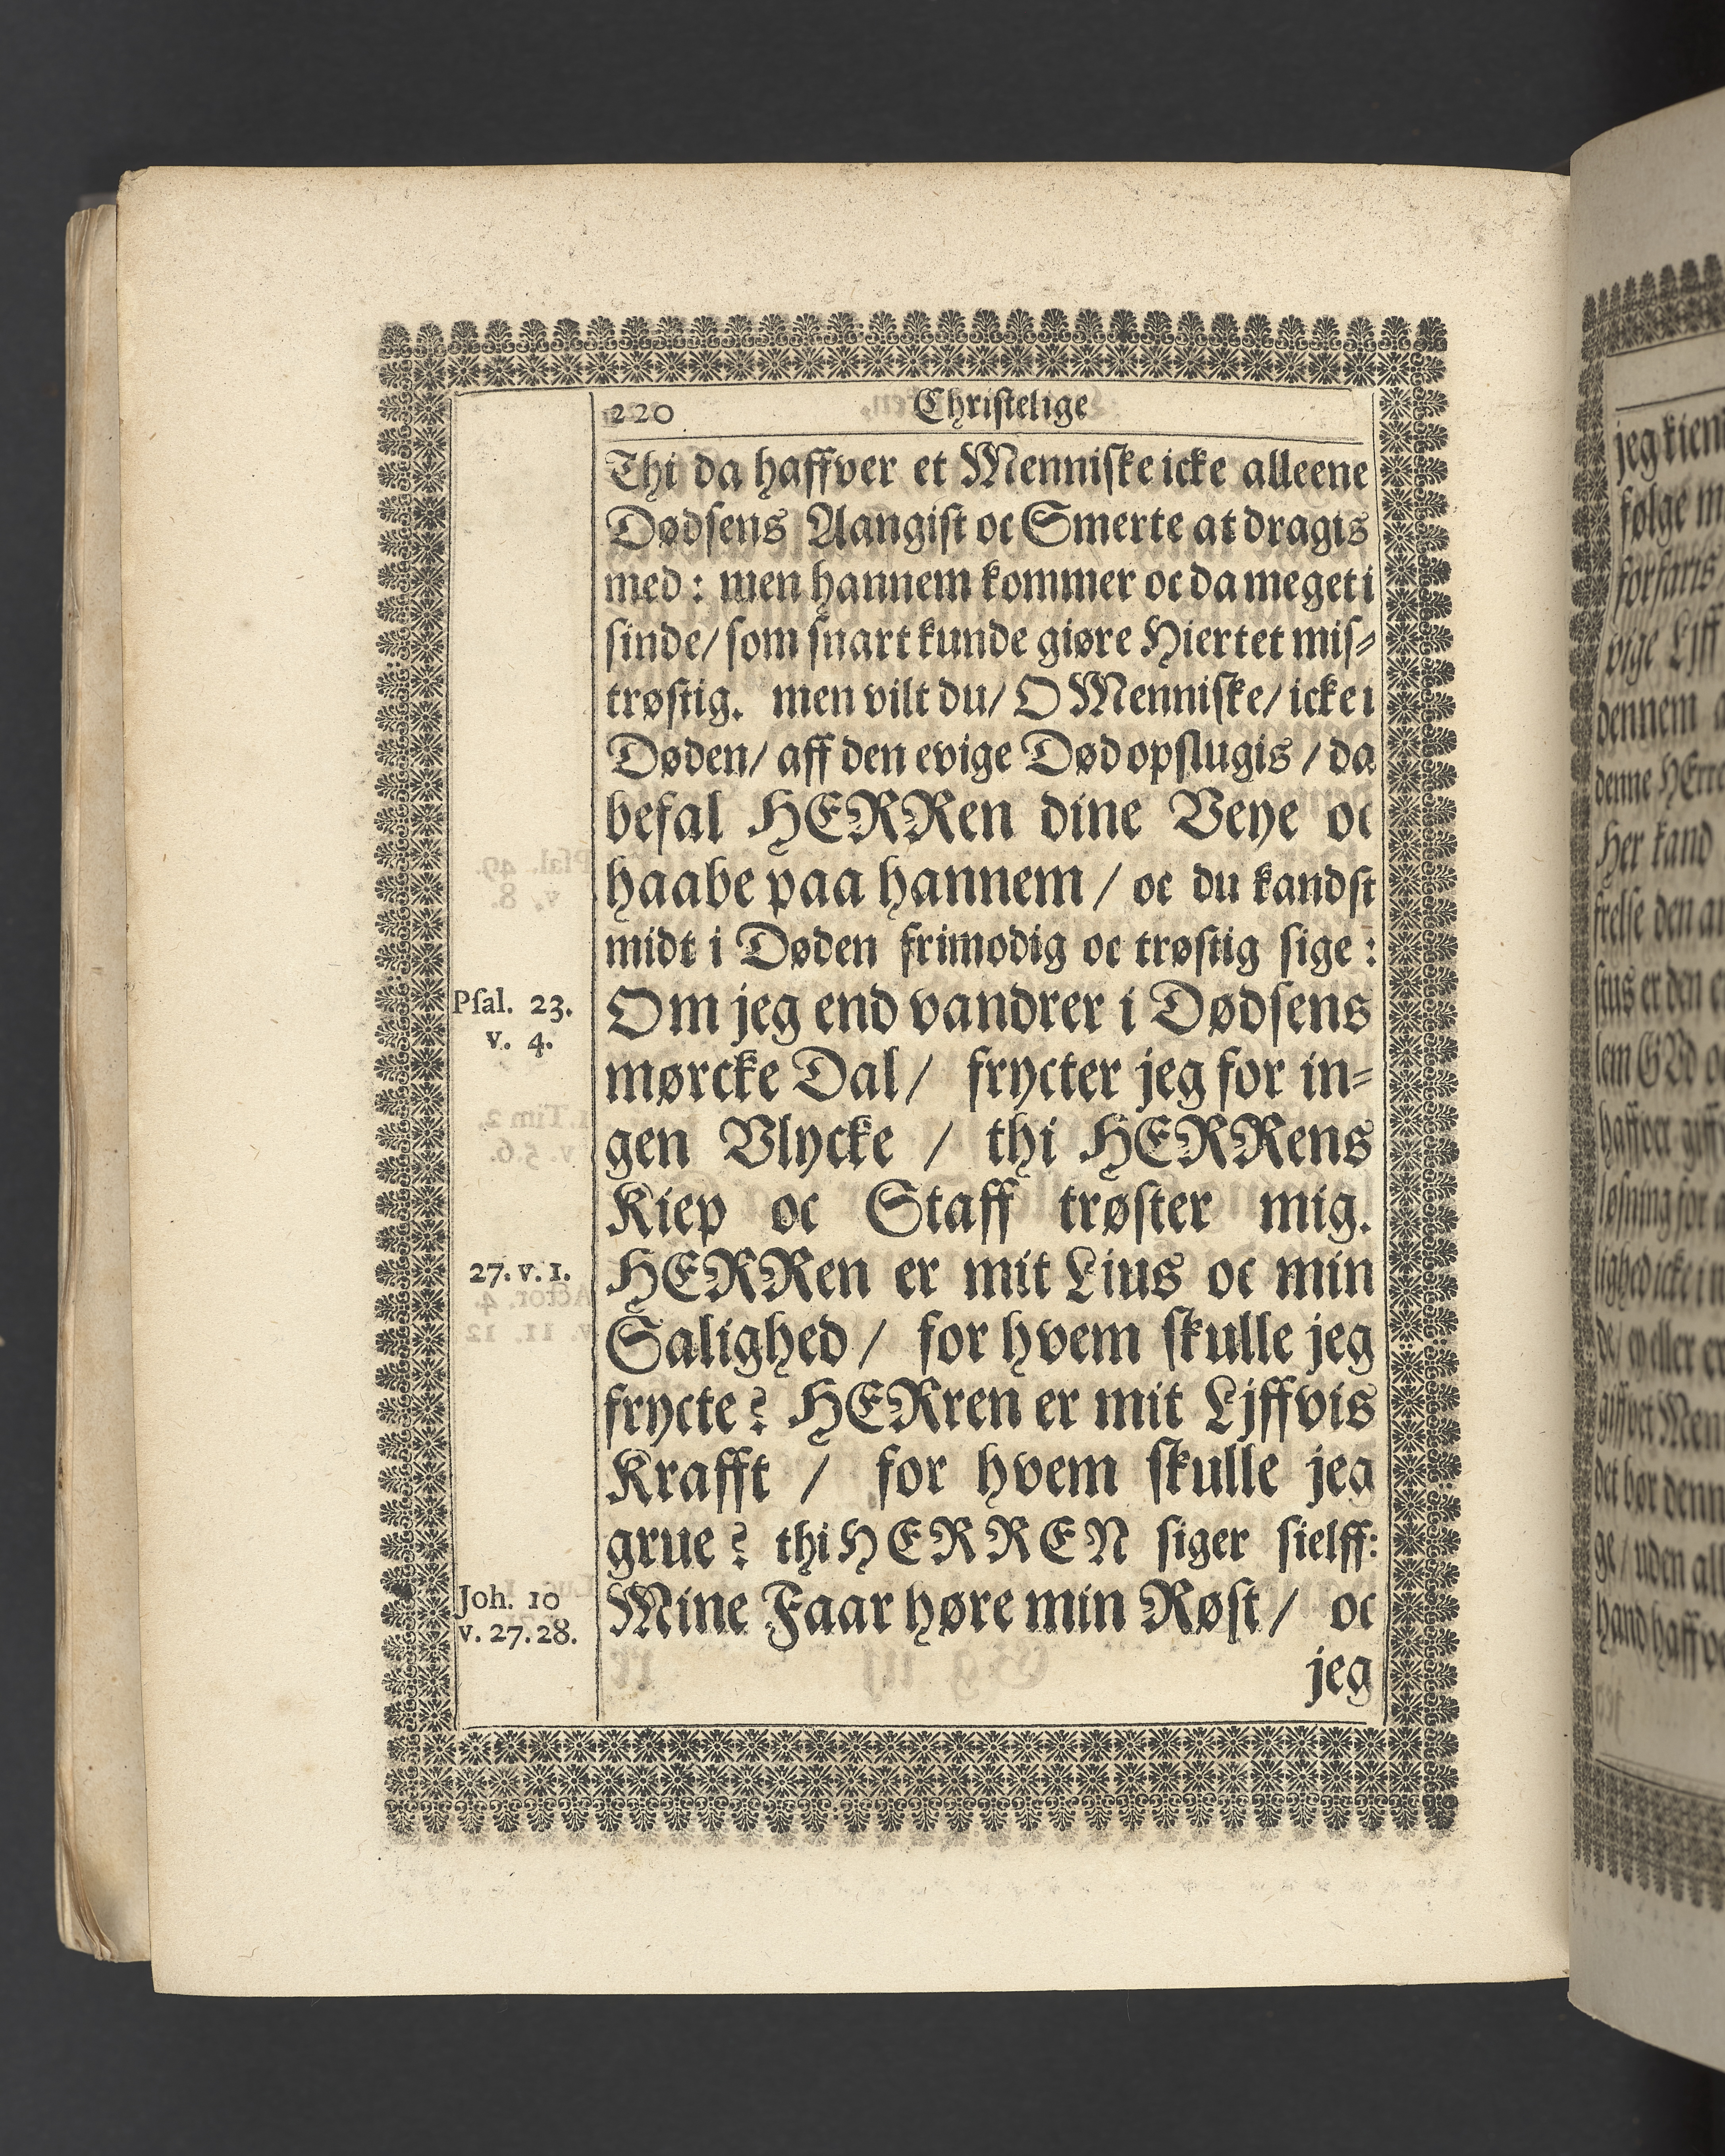 220 Christelige
Thi da haffver et Menniske icke alleene
Dødsens Aangist oc Smerte at dragis
med: men hannem kommer oc da meget i
sinde/ som snart kunde giøre Hiertet mis-
trøstig. men vilt du/ O Menniske/ icke i
Døden/ aff den evige Død opslugis / da
befal HERRen dine Veye oc
haabe paa hannem / oc du kandst
midt i Døden frimodig oc trøstig sige:
Psal. 23.
v. 4.
Om jeg end vandrer i Dødsens
mørcke Dal/ frycter jeg for in-
gen Vlycke / thi HERRens
Kiep oc Staff trøster mig.
27. v. 1.
HERRen er mit Lius oc min
Salighed / for hvem skulle jeg
frycte? HERren er mit Ljffvis
Krafft / for hvem skulle jeg
grue? thi HERREN siger sielff:
Joh. 10
v. 27. 28.
Mine Faar høre min Røst / oc
jeg
følge
vige Ljff
dennem
denne HErre
Her kand
haffver